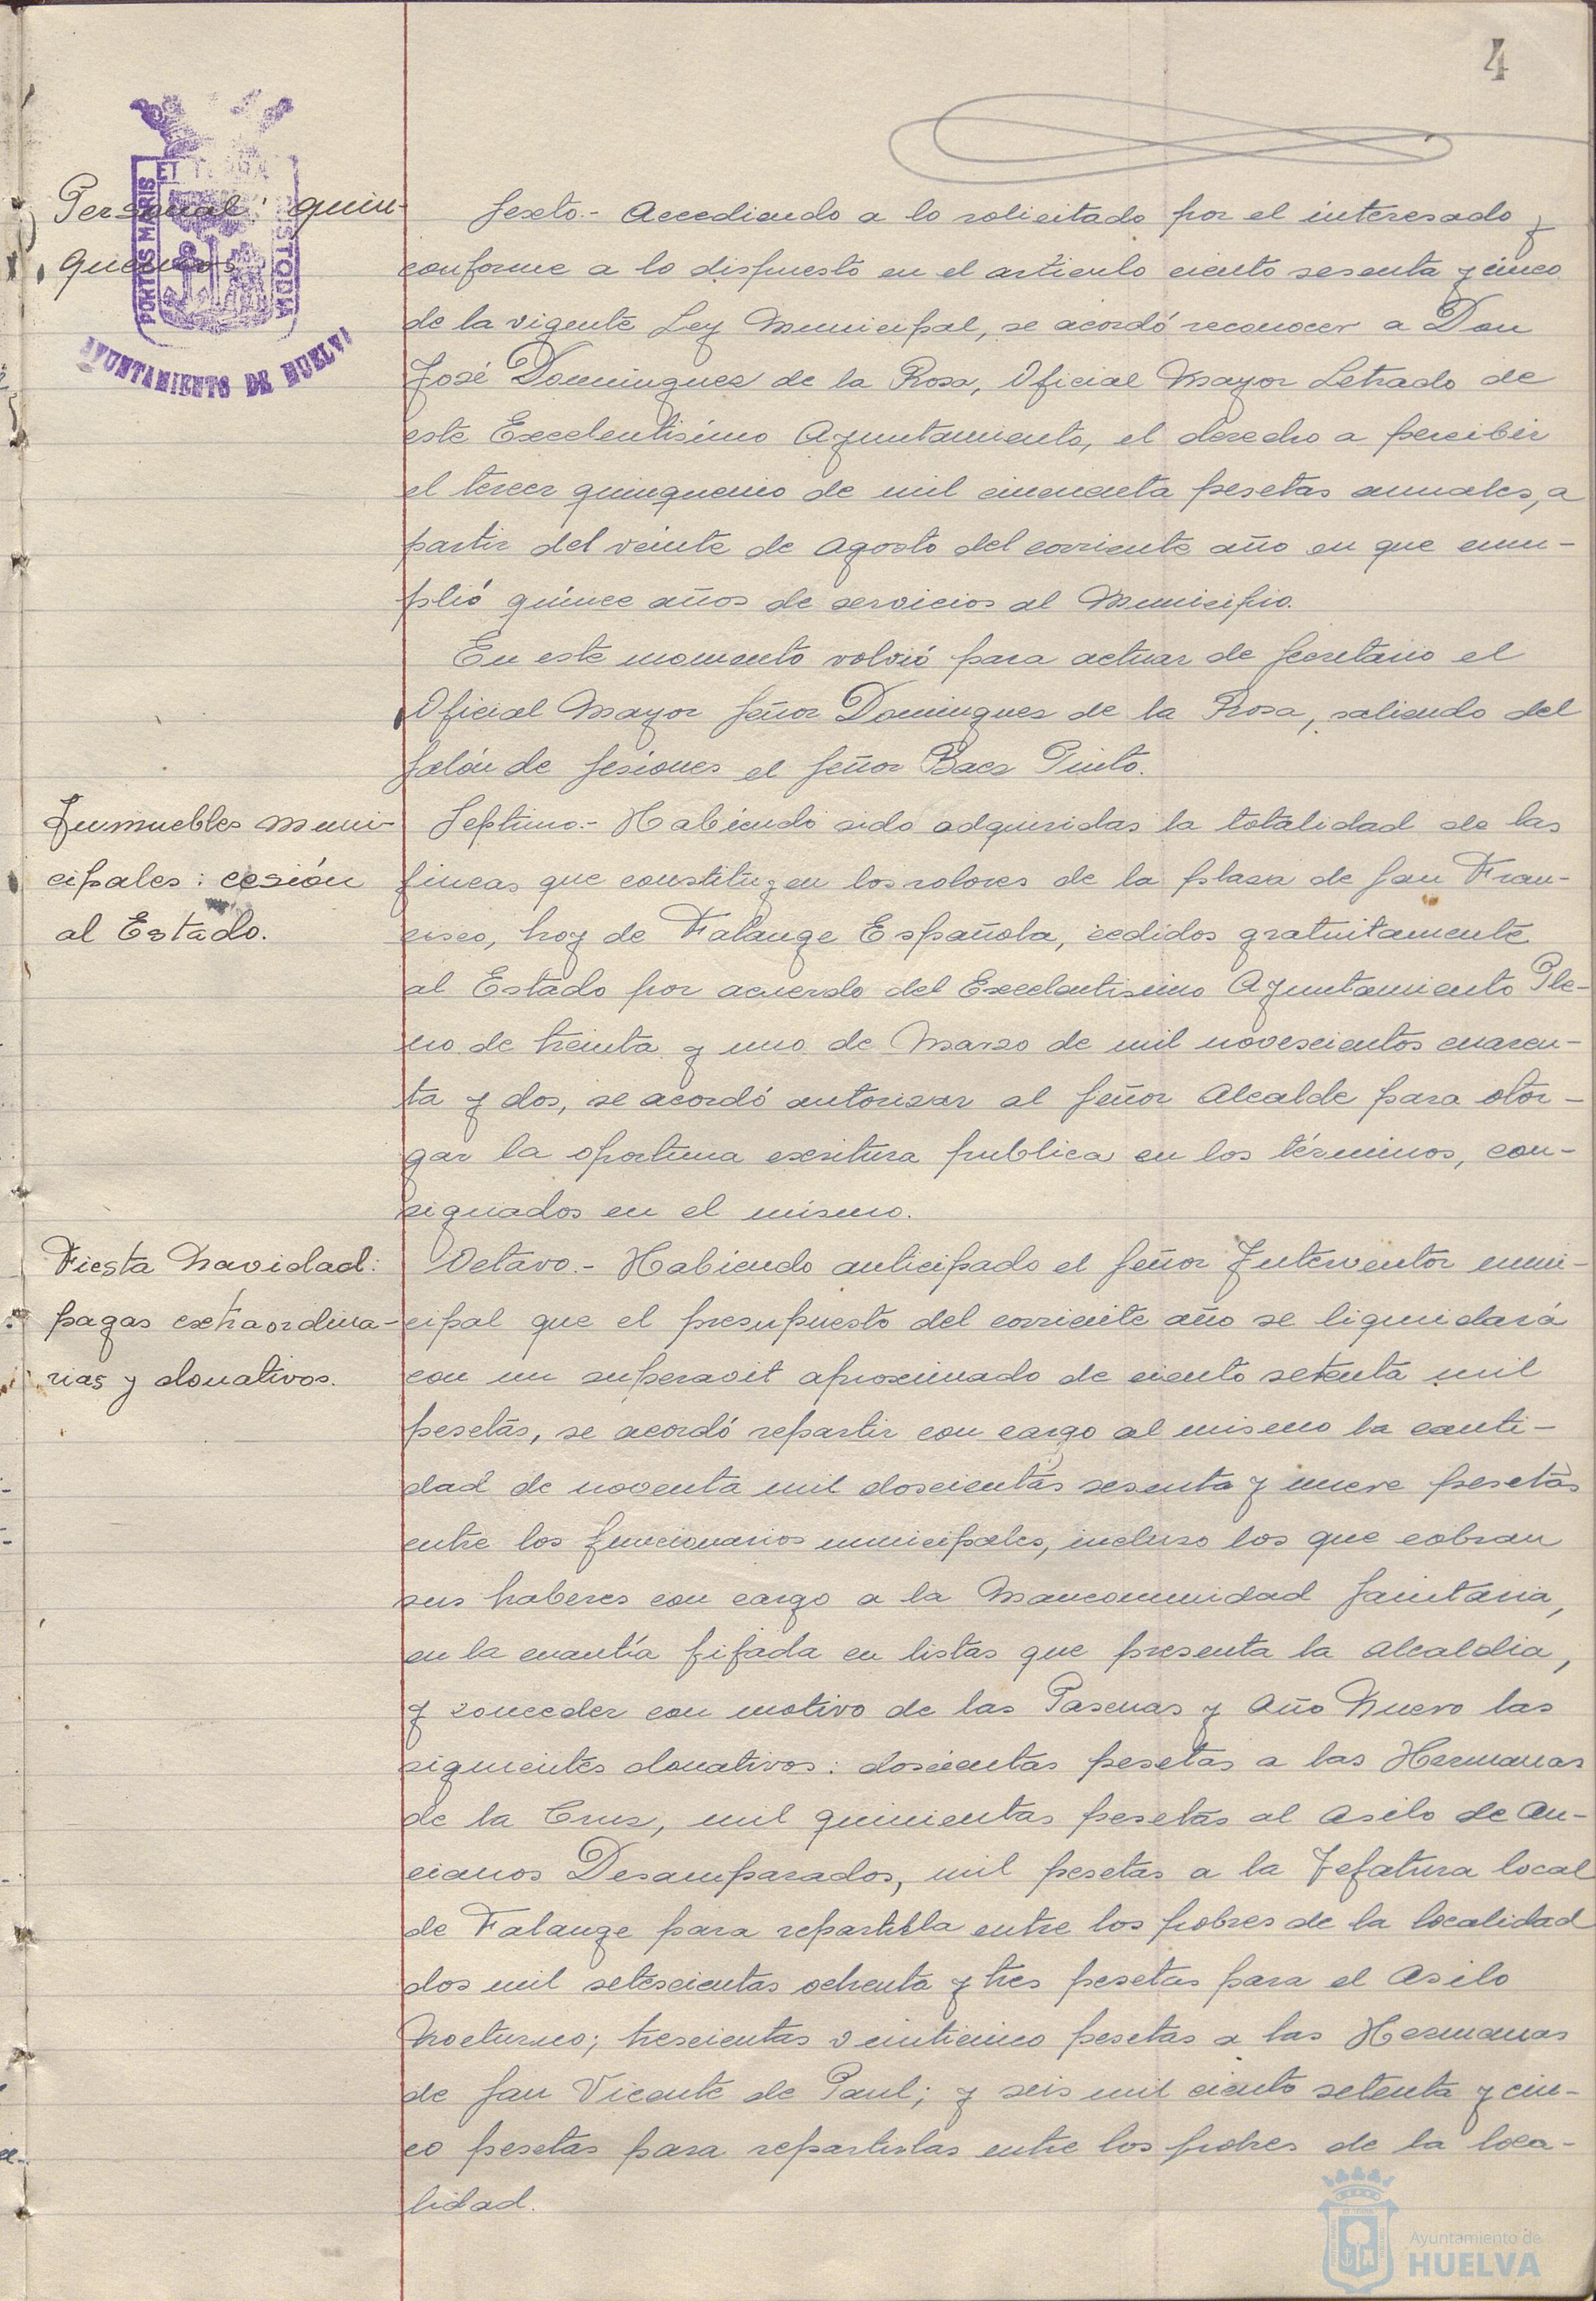 4
PORTUS MARIS
ET TERRÆ
CUSTODIA
AYUNTAMIENTO DE HUELVA
Personal: quin-
quenios
Sexto.- Accediendo a lo solicitado por el interesado y
conforme a lo dispuesto en el articulo ciento sesenta y cinco
de la vigente Ley Municipal, se acordó reconocer a Don
José Dominguez de la Rosa, Oficial Mayor Letrado de
este Excelentisimo Ayuntamiento, el derecho a percibir
el tercer quinquenio de mil cincuenta pesetas anuales, a
partir del veinte de Agosto del corriente año en que cum-
plió quince años de servicios al Municipio.
En este momento volvió para actuar de Secretario el
Oficial Mayor Señor Dominguez de la Rosa, saliendo del
Salón de Sesiones el Señor Baez Pinto.
Inmuebles muni-
cipales: cesión
al Estado.
Septimo.- Habiendo sido adquiridas la totalidad de las
fincas que constituyen los solares de la plaza de San Fran-
cisco, hoy de Falange Española, cedidos gratuitamente
al Estado por acuerdo del Excelentisimo Ayuntamiento Ple-
no de treinta y uno de Marzo de mil novescientos cuaren-
ta y dos, se acordó autorizar al Señor Alcalde para otor-
gar la oportuna escritura publica en los términos, con-
signados en el mismo.
Fiesta Navidad:
pagas extraordina-
rias y donativos.
Octavo.- Habiendo anticipado el Señor Interventor muni-
cipal que el presupuesto del corriente año se liquidará
con un superavit aproximado de ciento setenta mil
pesetas, se acordó repartir con cargo al mismo la canti-
dad de noventa mil doscientas sesenta y nueve pesetas
entre los funcionarios municipales, incluso los que cobran
sus haberes con cargo a la Mancomunidad Sanitaria,
en la cuantía fijada en listas que presenta la Alcaldia,
y conceder con motivo de las Pascuas y Año Nuevo las
siguientes donativos: doscientas pesetas a las Hermanas
de la Cruz, mil quinientas pesetas al Asilo de An-
cianos Desamparados, mil pesetas a la Jefatura local
de Falange para repartirla entre los pobres de la localidad
dos mil setescientas ochenta y tres pesetas para el Asilo
Nocturno; trescientas veinticinco pesetas a las Hermanas
de San Vicente de Paul; y seis mil ciento setenta y cin-
co pesetas para repartirlas entre los pobres de la loca-
lidad.
Ayuntamiento de
HUELVA